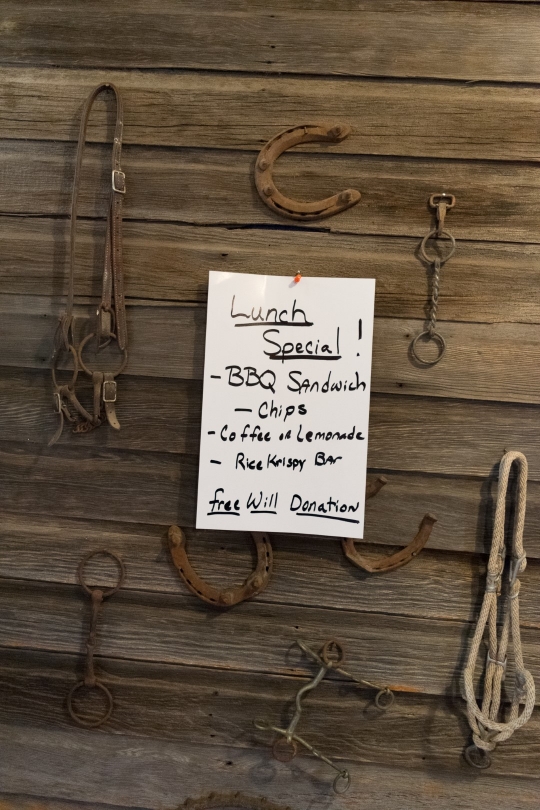 Lunch
Special !
- BBQ Sandwich
- Chips
- Coffee or Lemonade
- Rice Krispy Bar
free Will Donation